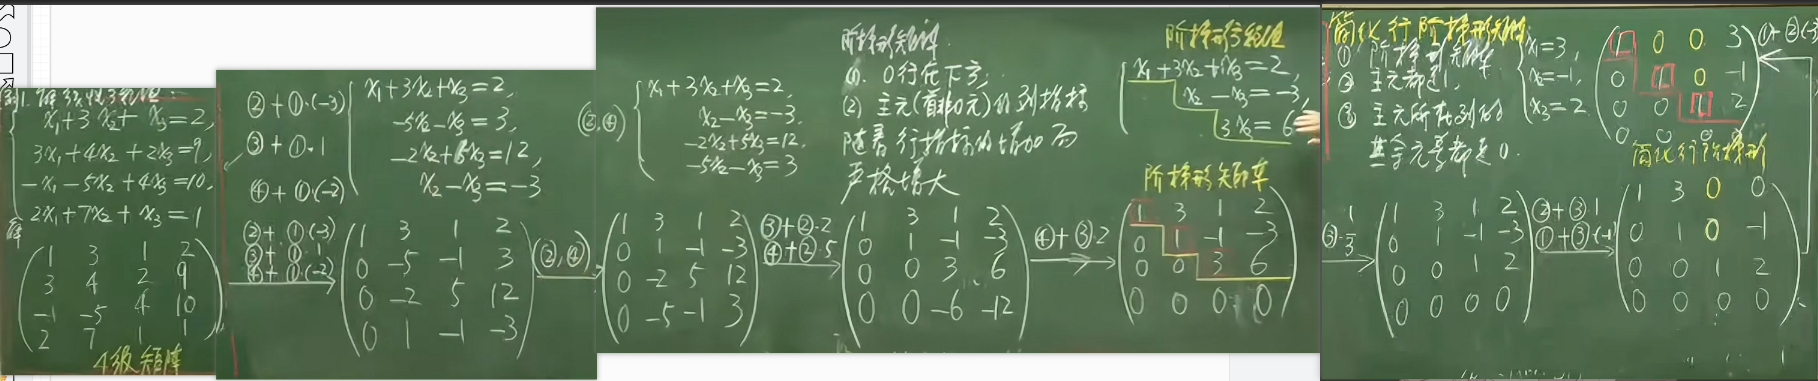 例1. 解线性方程组:
x₁+3x₂+x₃=2,
3x₁+4x₂+2x₃=9,
-x₁-5x₂+4x₃=10,
2x₁+7x₂+x₃=1
解
1 3 1 2
3 4 2 9
-1 -5 4 10
2 7 1 1
4级矩阵
②+①·(-3)
③+①·1
④+①·(-2)
x₁+3x₂+x₃=2,
-5x₂-x₃=3,
-2x₂+5x₃=12,
x₂-x₃=-3
②+①·(-3)
③+①·1
④+①·(-2)
1 3 1 2
0 -5 -1 3
0 -2 5 12
0 1 -1 -3
(②,④)
(②,④)
x₁+3x₂+x₃=2,
x₂-x₃=-3.
-2x₂+5x₃=12,
-5x₂-x₃=3
1 3 1 2
0 1 -1 -3
0 -2 5 12
0 -5 -1 3
③+②·2
④+②·5
阶梯形矩阵.
(1). 0行在下方;
(2) 主元(首非0元)的列指标
随着行指标的增加而
严格增大
1 3 1 2
0 1 -1 -3
0 0 3 6
0 0 -6 -12
④+③·2
阶梯形方程组
x₁+3x₂+x₃=2,
x₂-x₃=-3,
3x₃=6
阶梯形矩阵
1 3 1 2
0 1 -1 -3
0 0 3 6
0 0 0 0
简化行阶梯形矩阵
① 阶梯形矩阵
② 主元都是1,
③ 主元所在列的
其余元素都是0.
x₁=3,
x₂=-1,
x₃=2
1 0 0 3
0 1 0 -1
0 0 1 2
0 0 0 0
简化行阶梯形
③·1/3
1 3 1 2
0 1 -1 -3
0 0 1 2
0 0 0 0
②+③·1
①+③·(-1)
1 3 0 0
0 1 0 -1
0 0 1 2
0 0 0 0